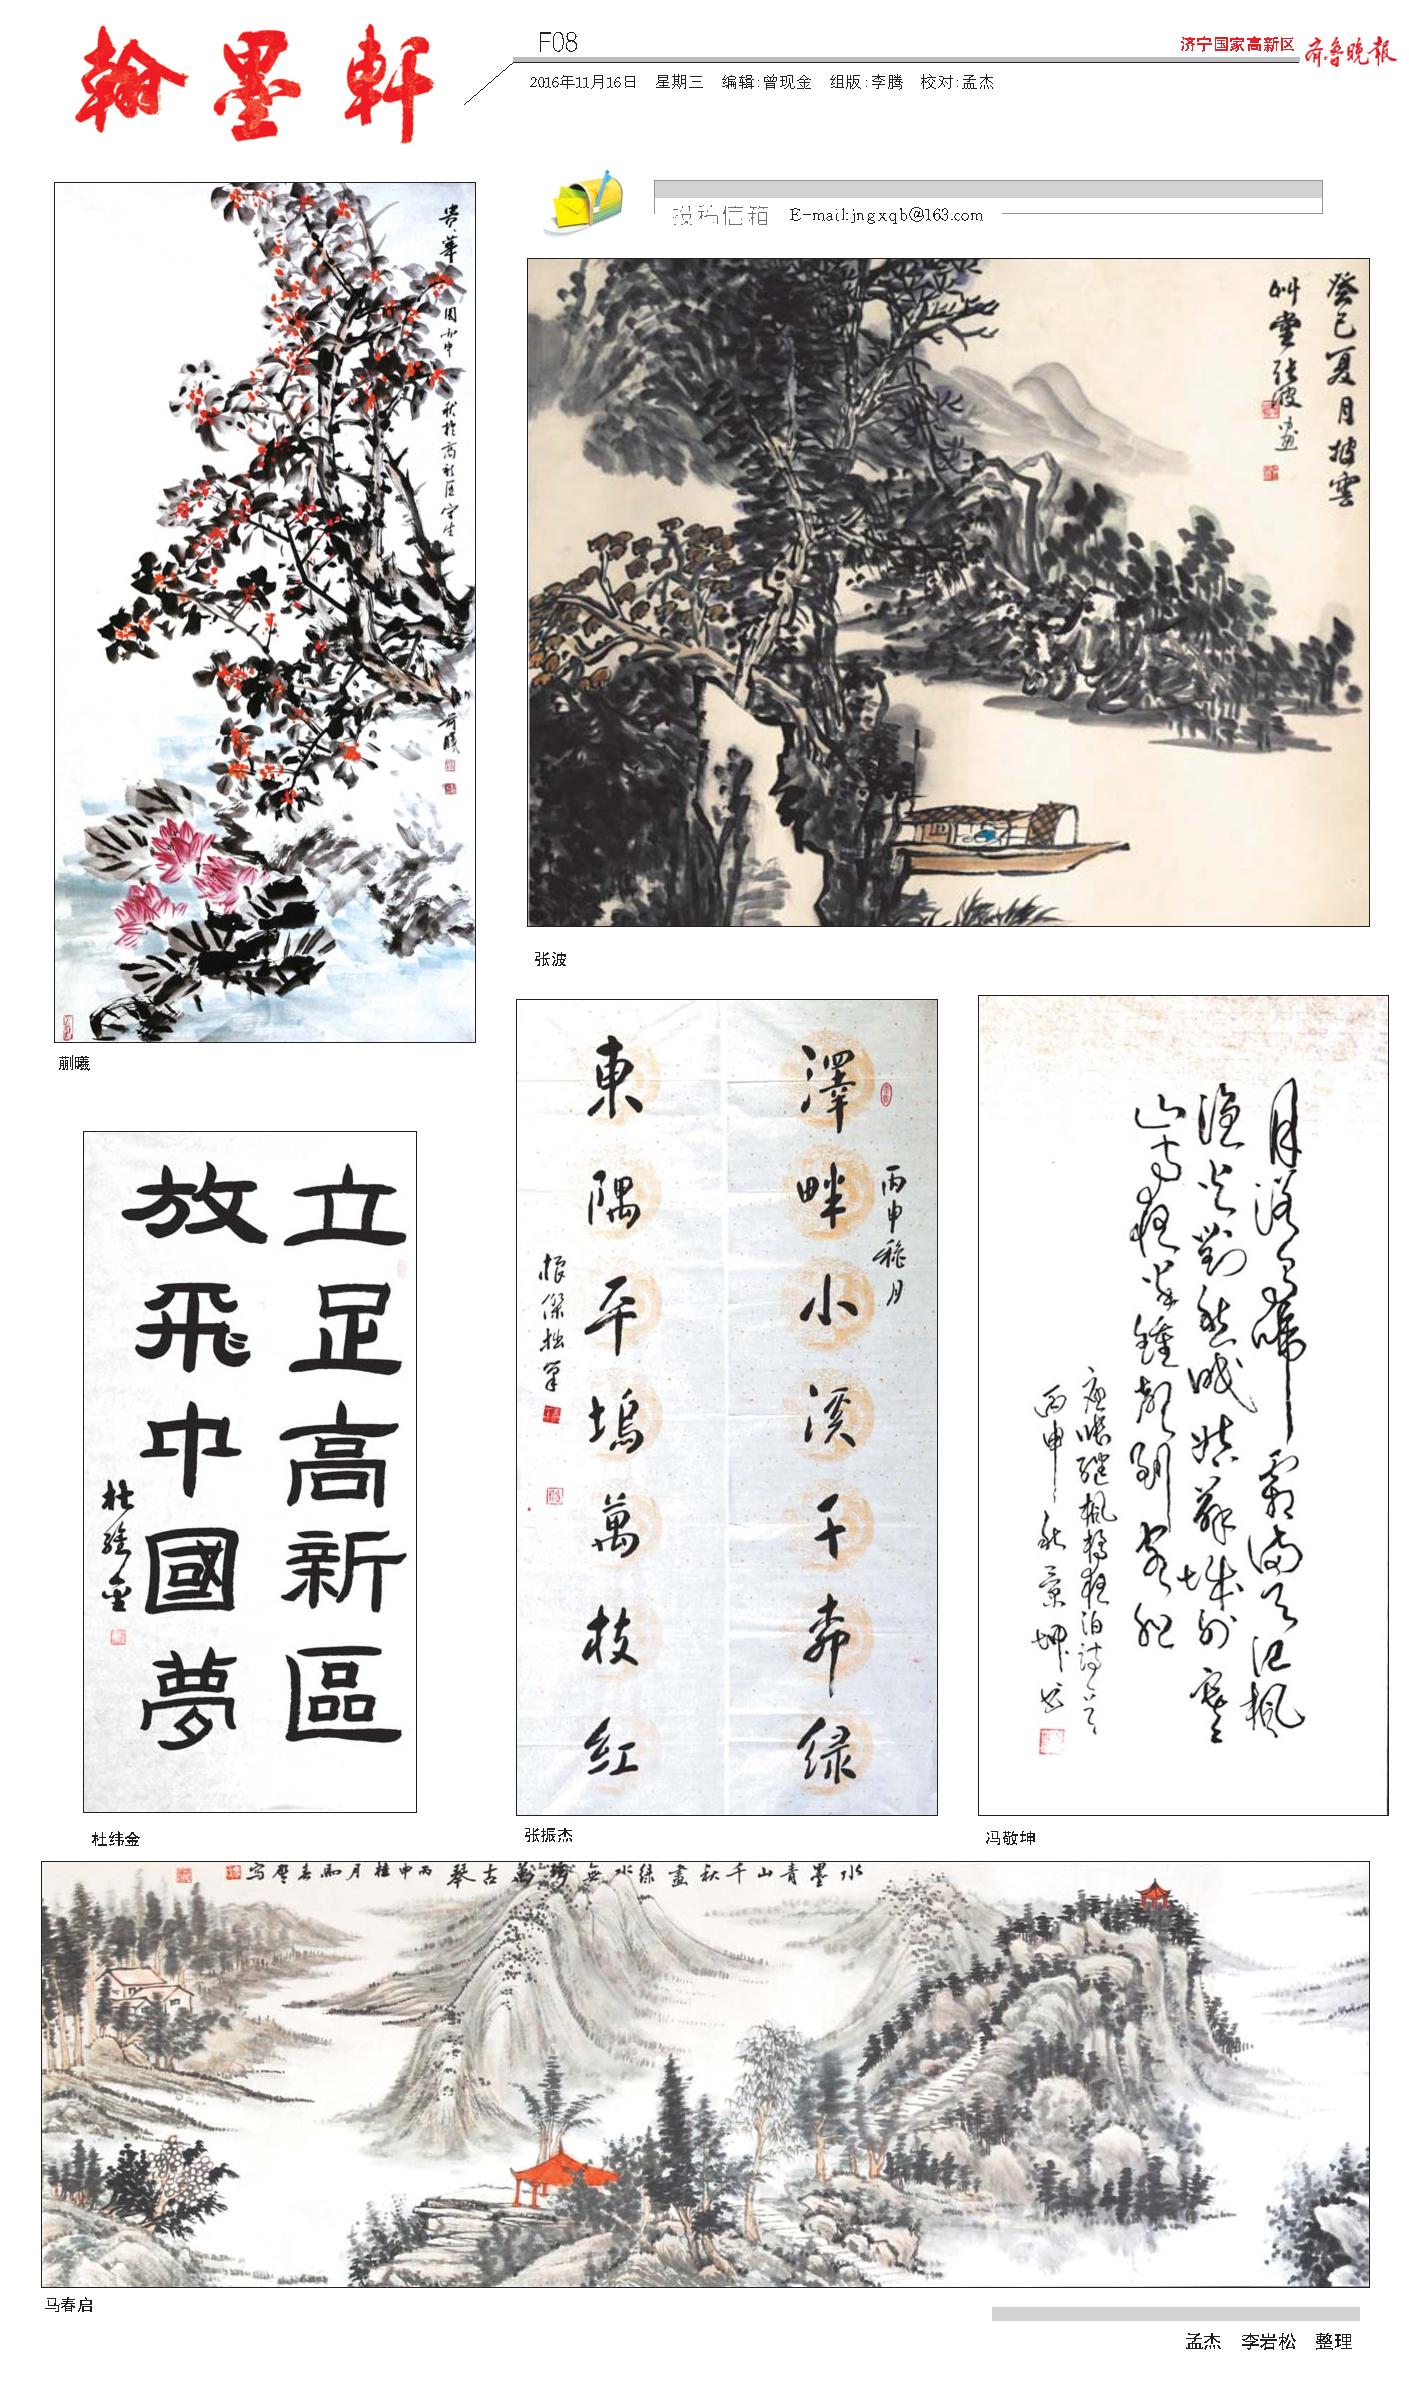 翰墨軒
F08
济宁国家高新区 齐鲁晚报
2016年11月16日 星期三 编辑:曾现金 组版:李腾 校对:孟杰
投稿信箱 E-mail:jngxqb@163.com
癸巳夏月披雲
艸堂張波畫
张波
蒯曦
立足高新區
放飛中國夢
杜緯金
杜纬金
丙申穐月
澤畔小溪千帶绿
東隅平塢萬枝红
振傑拙筆
张振杰
月落烏啼霜滿天江楓
漁火對愁眠姑蘇城外寒
山寺夜半鐘聲到客船
唐張繼楓橋夜泊詩一首
丙申秋景坤書
冯敬坤
水墨青山千秋畫绿水無弦萬古琴丙申桂月馬春啓写
马春启
孟杰 李岩松 整理